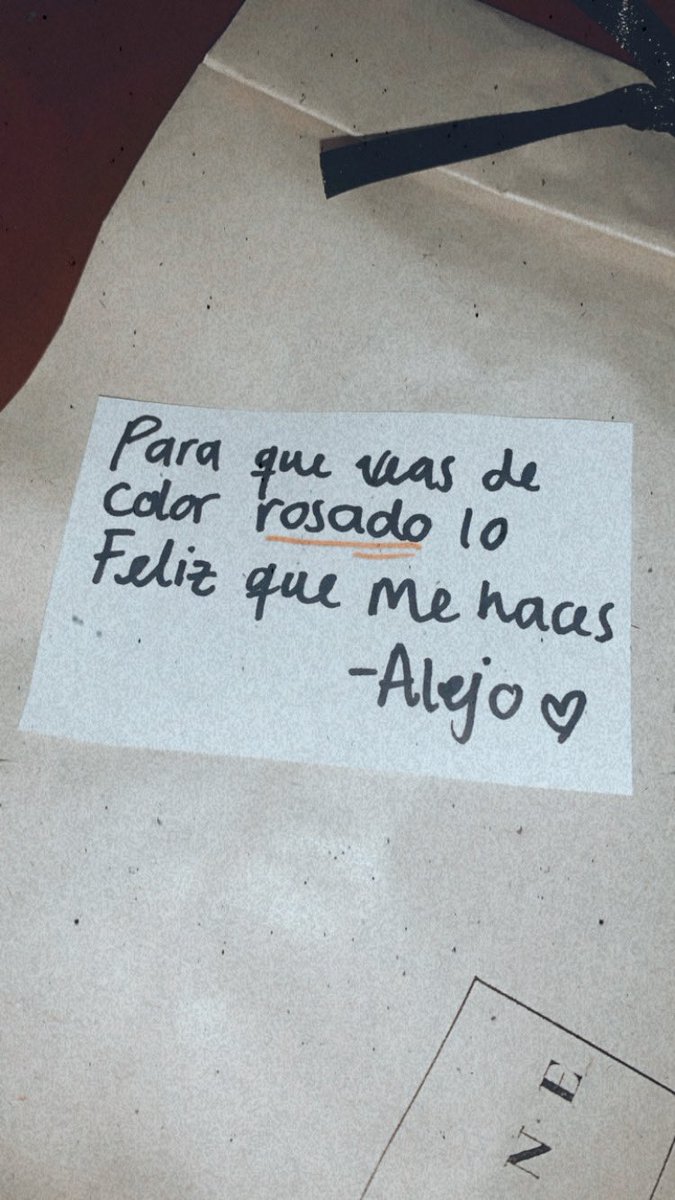 Para que veas de
color rosado lo
Feliz que me haces
-Alejo ♡
N E